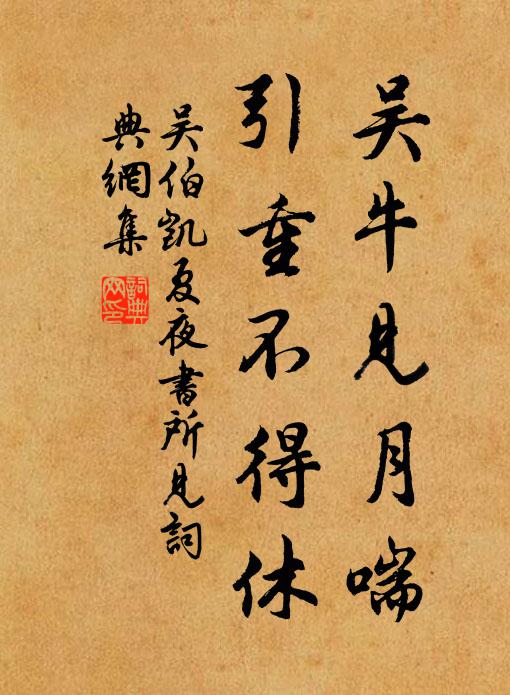 吴牛見月喘
引重不得休
吴伯凱夏夜書所見詞
典網集
詞典
网印